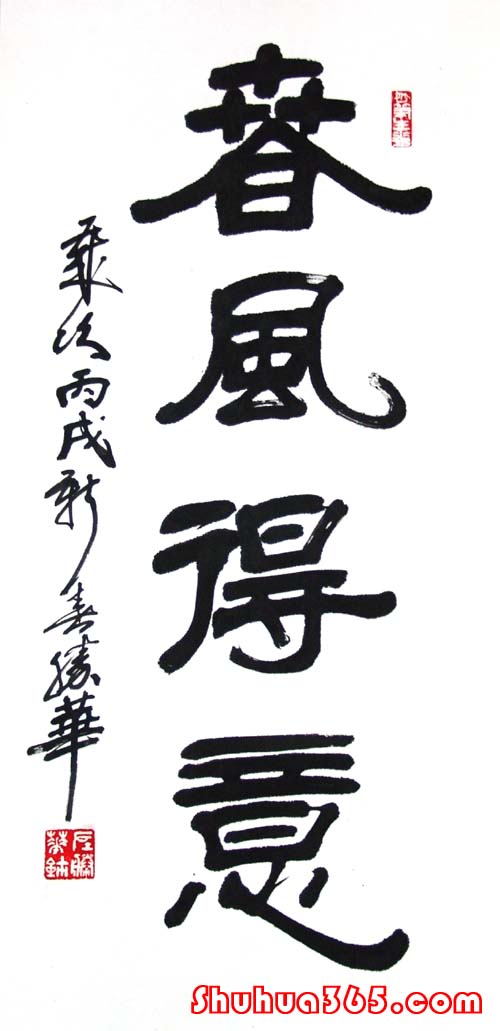 春風得意
歲次丙戌新春勝華
Shuhua365.com